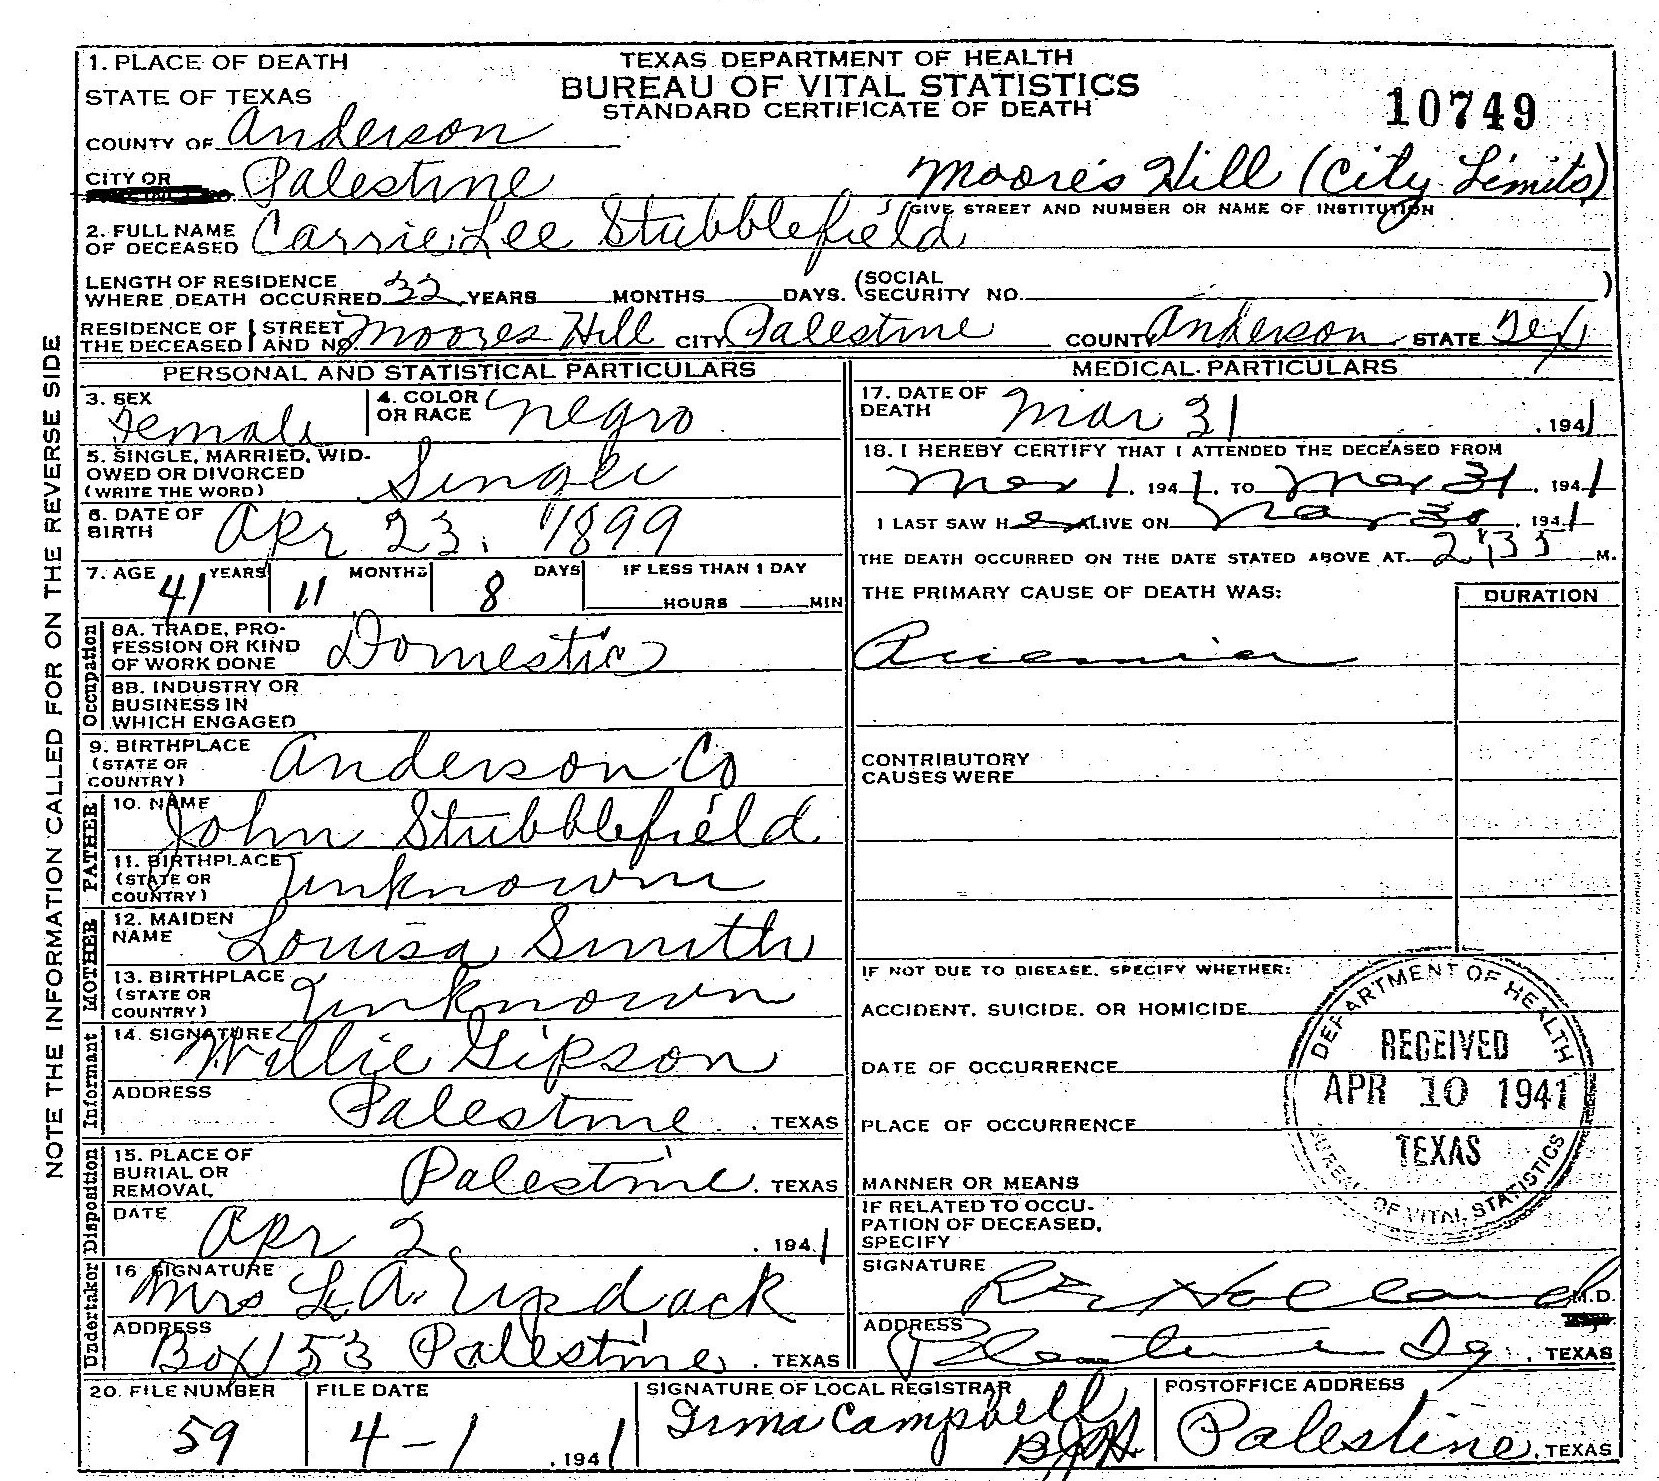 TEXAS DEPARTMENT OF HEALTH
BUREAU OF VITAL STATISTICS
STANDARD CERTIFICATE OF DEATH
10749
1. PLACE OF DEATH
STATE OF TEXAS
COUNTY OF Anderson
CITY OR Palestine
Moore's Hill (City Limits)
GIVE STREET AND NUMBER OR NAME OF INSTITUTION
2. FULL NAME OF DECEASED Carrie Lee Stubblefield
LENGTH OF RESIDENCE WHERE DEATH OCCURRED 32 YEARS MONTHS DAYS. (SOCIAL SECURITY NO. )
RESIDENCE OF THE DECEASED STREET AND NO. Moores Hill CITY Palestine COUNTY Anderson STATE Tex
NOTE THE INFORMATION CALLED FOR ON THE REVERSE SIDE
PERSONAL AND STATISTICAL PARTICULARS
3. SEX Female 4. COLOR OR RACE Negro
5. SINGLE, MARRIED, WIDOWED OR DIVORCED (WRITE THE WORD) Single
6. DATE OF BIRTH Apr 23, 1899
7. AGE 41 YEARS 11 MONTHS 8 DAYS IF LESS THAN 1 DAY HOURS MIN
Occupation
8A. TRADE, PROFESSION OR KIND OF WORK DONE Domestic
8B. INDUSTRY OR BUSINESS IN WHICH ENGAGED
9. BIRTHPLACE (STATE OR COUNTRY) Anderson Co
FATHER
10. NAME John Stubblefield
11. BIRTHPLACE (STATE OR COUNTRY) Unknown
MOTHER
12. MAIDEN NAME Louisa Smith
13. BIRTHPLACE (STATE OR COUNTRY) Unknown
Informant
14. SIGNATURE Willie Gipson
ADDRESS Palestine. TEXAS
Disposition
15. PLACE OF BURIAL OR REMOVAL Palestine. TEXAS
DATE Apr 2, 1941
Undertaker
16 SIGNATURE Mrs L. A.
ADDRESS Box 153 Palestine. TEXAS
MEDICAL PARTICULARS
17. DATE OF DEATH Mar 31, 1941
18. I HEREBY CERTIFY THAT I ATTENDED THE DECEASED FROM
Mar 1, 1941, TO Mar 31, 1941
I LAST SAW Her ALIVE ON Mar 30, 1941
THE DEATH OCCURRED ON THE DATE STATED ABOVE AT 2:35 M.
THE PRIMARY CAUSE OF DEATH WAS: DURATION
CONTRIBUTORY CAUSES WERE
IF NOT DUE TO DISEASE, SPECIFY WHETHER:
ACCIDENT, SUICIDE, OR HOMICIDE
DATE OF OCCURRENCE
PLACE OF OCCURRENCE
MANNER OR MEANS
IF RELATED TO OCCUPATION OF DECEASED, SPECIFY
DEPARTMENT OF HEALTH
RECEIVED
APR 10 1941
TEXAS
BUREAU OF VITAL STATISTICS
SIGNATURE Holland M.D.
ADDRESS Palestine TEXAS
20. FILE NUMBER 59 FILE DATE 4-1, 1941 SIGNATURE OF LOCAL REGISTRAR Irma Campbell POSTOFFICE ADDRESS Palestine, TEXAS